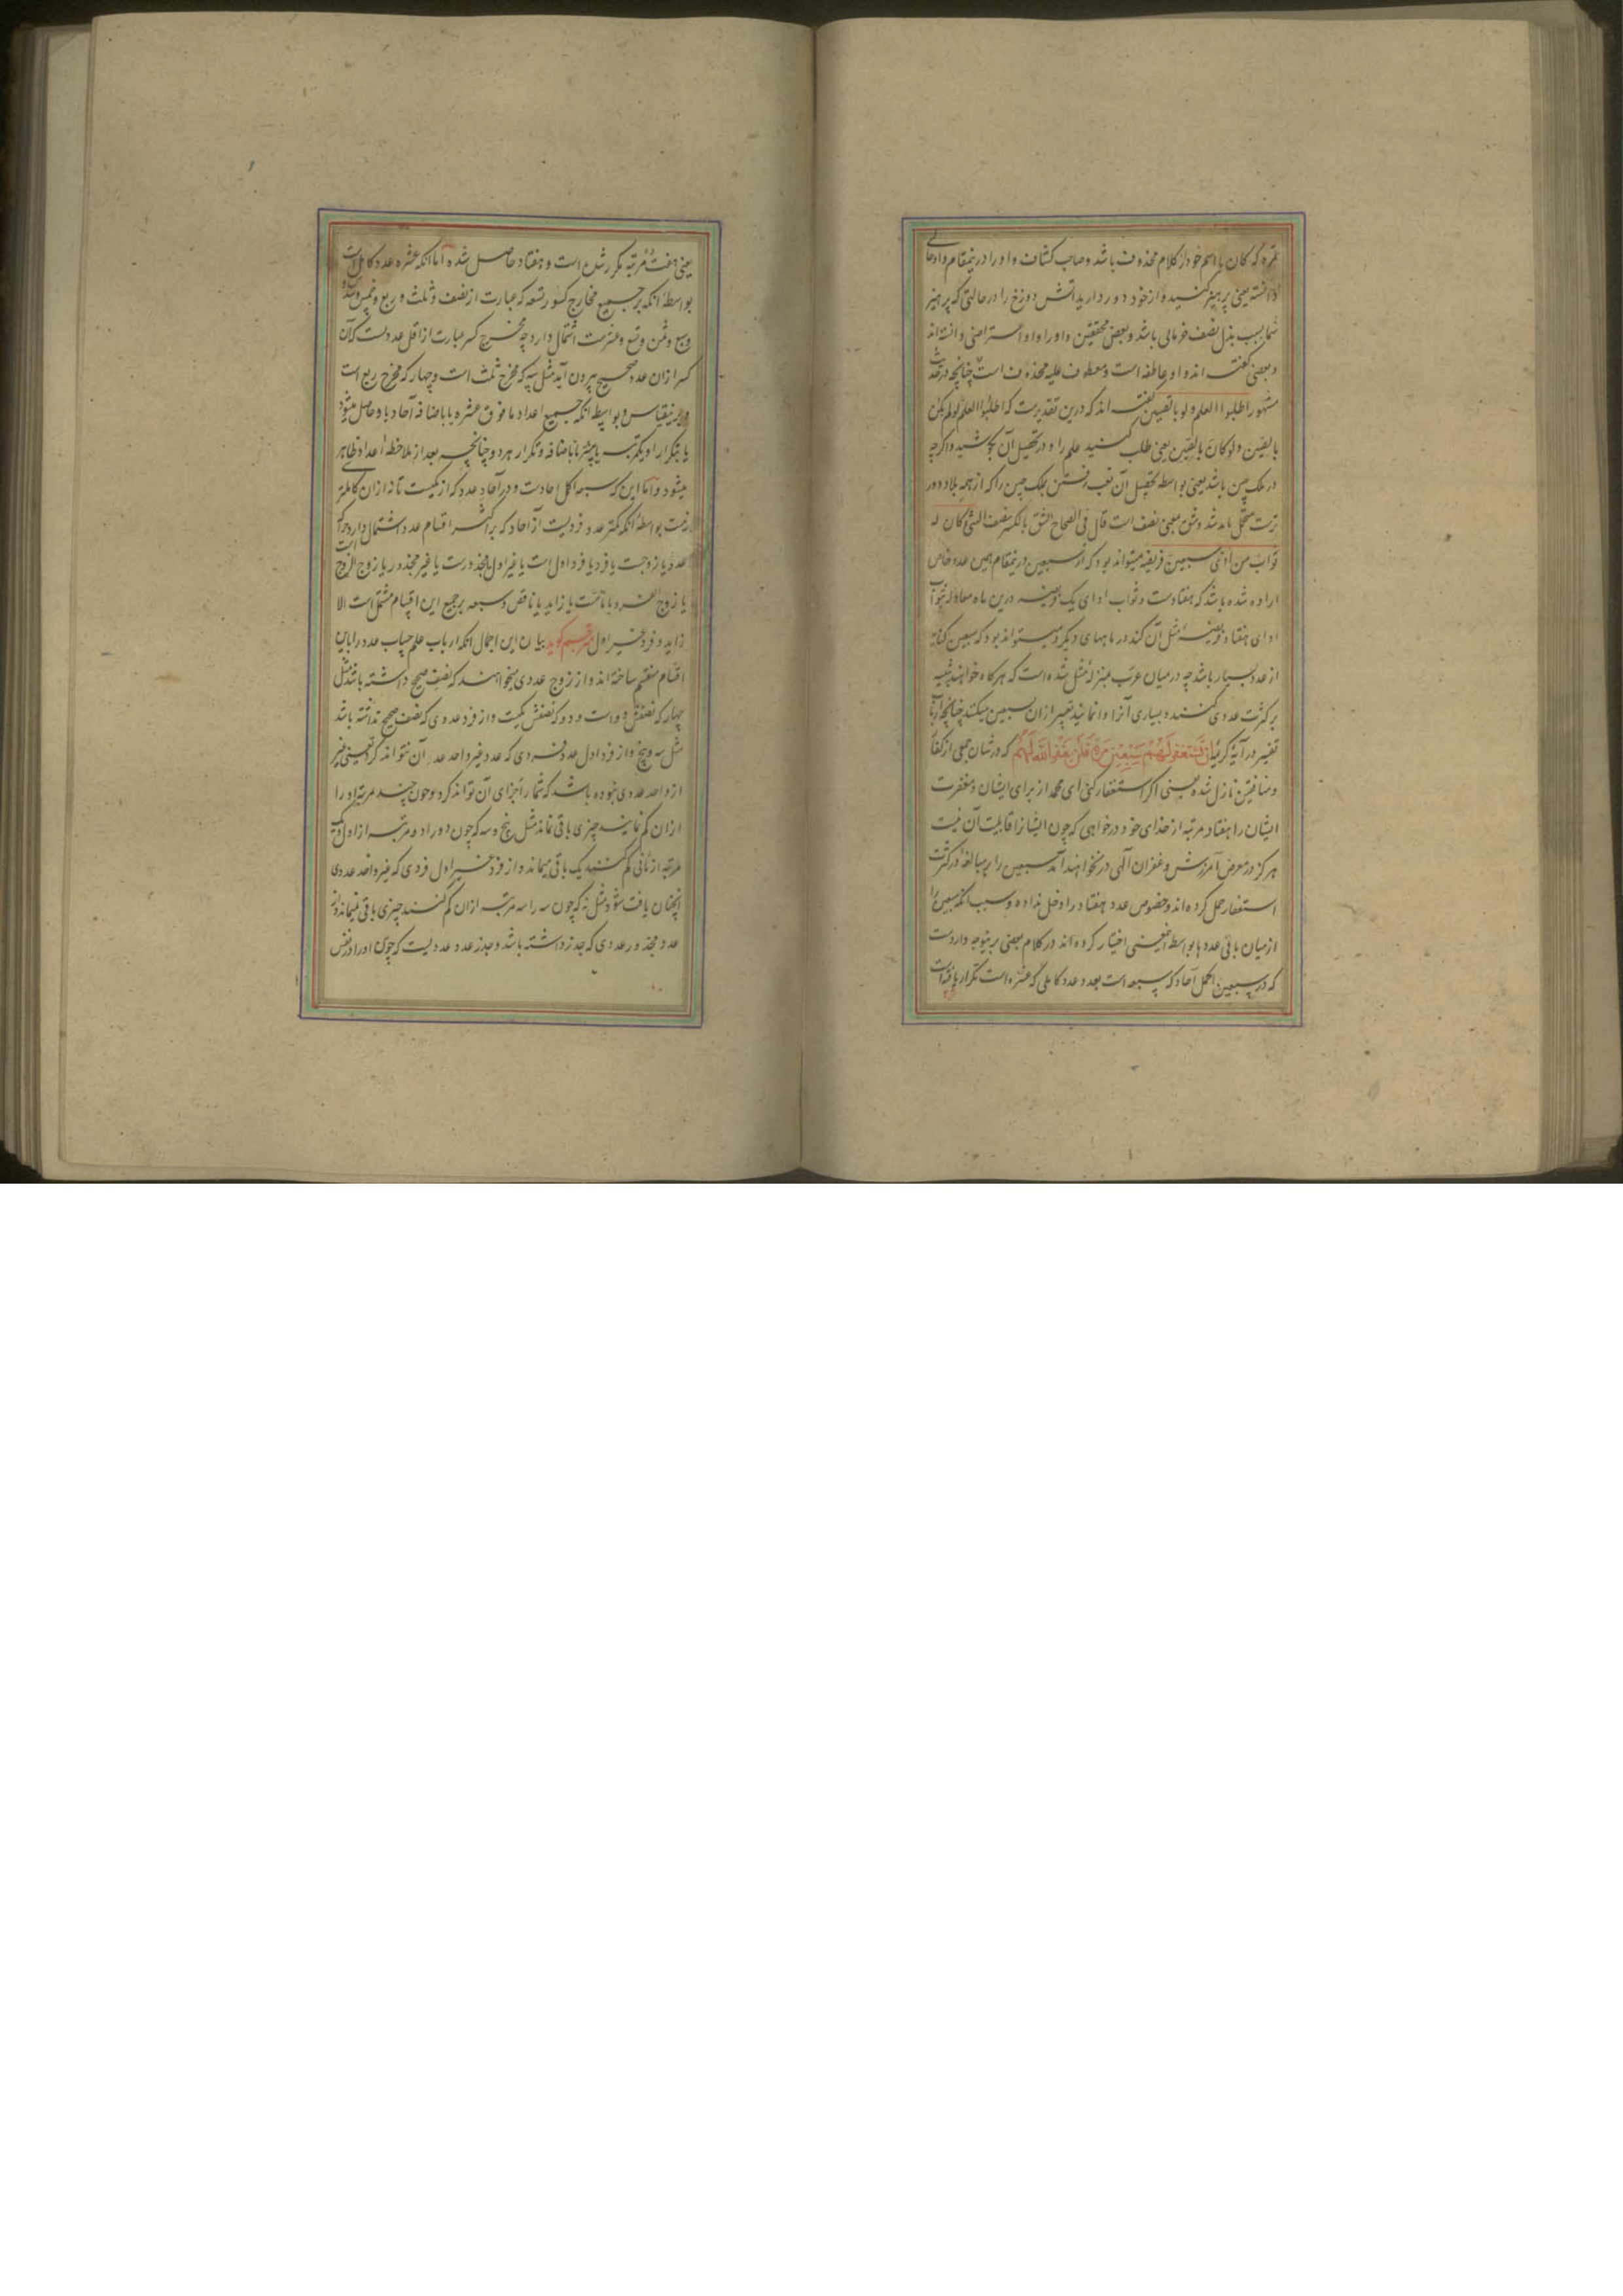 تمره که کان با اسم خود از کلام محذوف باشد و صاحب کشاف واو را درینمقام واو حالی
دانسته یعنی پرهیز کنید و از خود دور دارید آتش دوزخ را در حالتی که پرهیز
شما بسبب بذل نصف خرمائی باشد و بعضی محققین واو را واو اعتراضی دانسته اند
و بعضی گفته اند واو عاطفه است و معطوف علیه محذوف است چنانچه در حدیث
مشهور اطلبوا العلم ولو بالصین گفته اند که درین تقدیرست که اطلبوا العلم لو لم یکن
بالصین ولو کان بالصین یعنی طلب کنید علم را و در تحصیل آن بکوشید و اگرچه
در ملک چین باشد یعنی بواسطه تحصیل آن تعب رفتن بملک چین را که از همه بلاد دور
ترست متحمل باید شد وشق بمعنی نصف است قال فی الصحاح الشق بالکسر نصف الشیٔ کان له
ثواب من ادی سبعین فریضه میتواند بود که از سبعین درینمقام همین عدد خاص
اراده شده باشد که هفتادست و ثواب ادای یک فریضه درین ماه معادل ثواب
ادای هفتاد فریضهٔ مثل آن کند در ماههای دیگر و میتواند بود که سبعین کنایه
از عدد بسیار باشد چه در میان عرب بمنزلهٔ مثل شده است که هرکاه خواهند تنبیه
بر کثرت عددی کنند و بسیاری آنرا وانمایند تعبیر ازان بسبعین میکنند چنانچه ارباب
تفسیر در آیهٔ کریمهٔ ان تستغفر لهم سبعین مرة فلن یغفر الله لهم که در شان جمعی از کفار
و منافقین نازل شده یعنی اگر استغفار کنی ای محمد از برای ایشان و مغفرت
ایشان را هفتاد مرتبه از خدای خود درخواهی که چون ایشانرا قابلیت آن نیست
هرگز در معرض آمرزش و غفران الهی در نخواهند آمد سبعین را بر مبالغه در کثرت
استغفار حمل کرده اند و خصوص عدد هفتاد را دخل نداده و سبب انکه سبعین را
از میان باقی عددها بواسطه اینمعنی اختیار کرده اند در کلام بعضی برینوجه واردست
که در سبعین اکمل آحاد که سبعه است بعدد عدد کاملی که عشره است تکرار یافته است
یعنی هفت ده مرتبه مکرر شده است و هفتاد حاصل شده اما انکه عشره عدد کامل است
بواسطهٔ انکه بر جمیع مخارج کسور تسعه که عبارت از نصف و ثلث و ربع و خمس و سدس
و سبع و ثمن و تسع و عشرست اشتمال دارد چه مخرج کسر عبارت از اقل عددیست که آن
کسر ازان عدد صحیح بیرون آید مثل سه که مخرج ثلث است و چهار که مخرج ربع است
و برینقیاس و بواسطه انکه جمیع اعداد ما فوق عشره یا باضافه آحاد با و حاصل میشود
یا بتکرار او یکمرتبه یا بیشتر یا باضافه و تکرار هر دو چنانچه بعد از ملاحظه اعداد ظاهر
میشود و اما این که سبعه اکمل احادست و در آحاد عدد که از یکیست تا نه ازان کاملتر
نیست بواسطه انکه کمتر عددی فردیست از آحاد که بر اکثر اقسام عدد اشتمال دارد چرا که
عدد یا زوجست یا فرد یا فرد اول است یا غیر اول یا مجذورست یا غیر مجذور یا زوج الزوج است
یا زوج الفرد یا تامست یا زاید یا ناقص و سبعه بر جمیع این اقسام مشتمل است الا
زاید و فرد غیر اول مترجم گوید بیان این اجمال انکه ارباب علم حساب عدد را باین
اقسام منقسم ساخته اند و از زوج عددی میخواهند که نصف صحیح داشته باشد مثل
چهار که نصفش دو است و دو که نصفش یکیست و از فرد عددی که نصف صحیح نداشته باشد
مثل سه و پنج و از فرد اول عدد فردی که عدد غیر واحد عد آن نتواند کرد یعنی غیر
از واحد عددی نبوده باشد که شمار اجزای آن تواند کرد و چون چند مرتبه او را
ازان کم نمایند چیزی باقی نماند مثل پنج و سه که چون دو را دو مرتبه از اول و یک
مرتبه از ثانی کم کنند یک باقی میماند و از فرد غیر اول فردی که غیر واحد عددی
انچنان یافت شود مثل نه که چون سه را سه مرتبه ازان کم کنند چیزی باقی نمیماند و از
عدد مجذور عددی که جذر داشته باشد و جذر عدد عددیست که چون او را در نفس